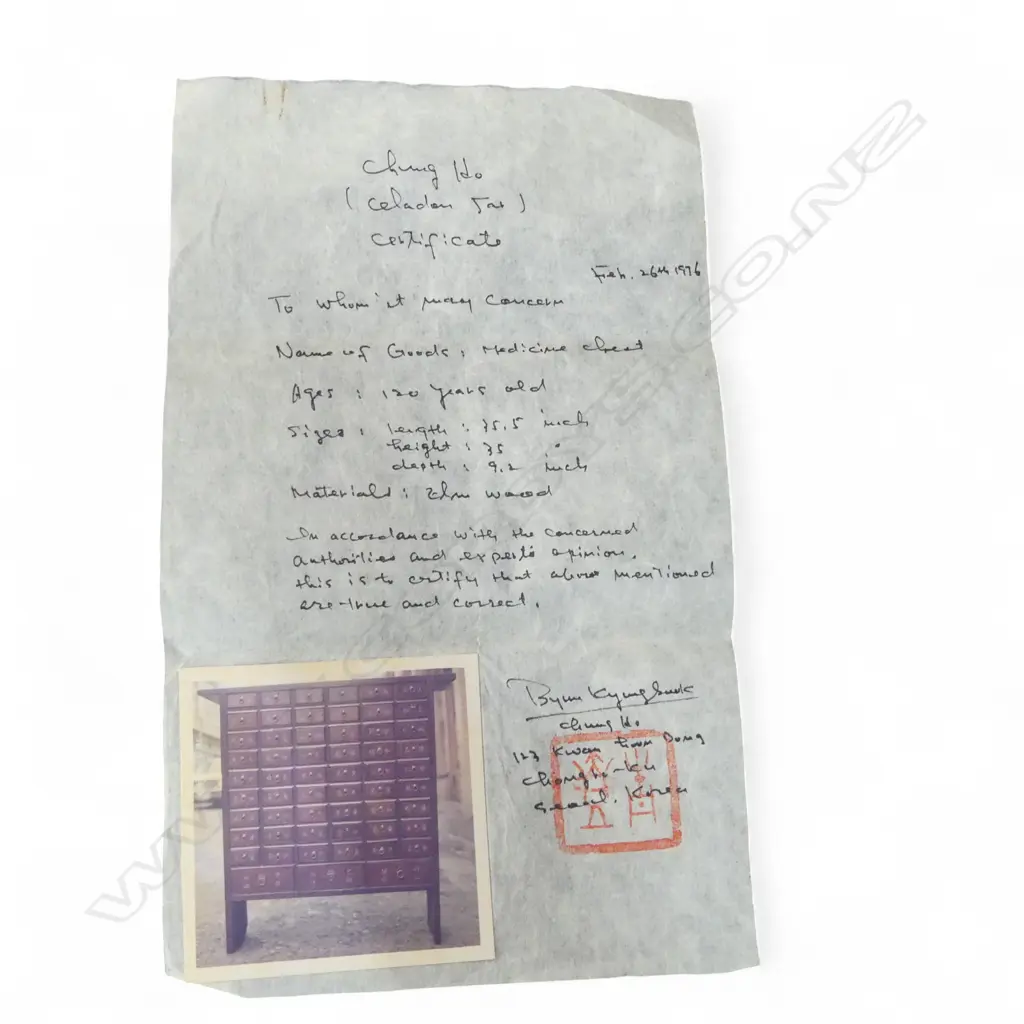 Chung Ho
(Celadon Jar)
Certificate
Feb. 26th 1976
To whom it may concern
Name of Goods : Medicine chest
Ages : 120 years old
Sizes : length : 35.5 inch
height : 35 "
depth : 9.2 inch
Materials : Elm wood
In accordance with the concerned
authorities and experts opinion,
this is to certify that above mentioned
are true and correct.
Byun Kyung
Chung Ho
123 Kwan Hoon Dong
Chongro-Ku
Seoul. Korea